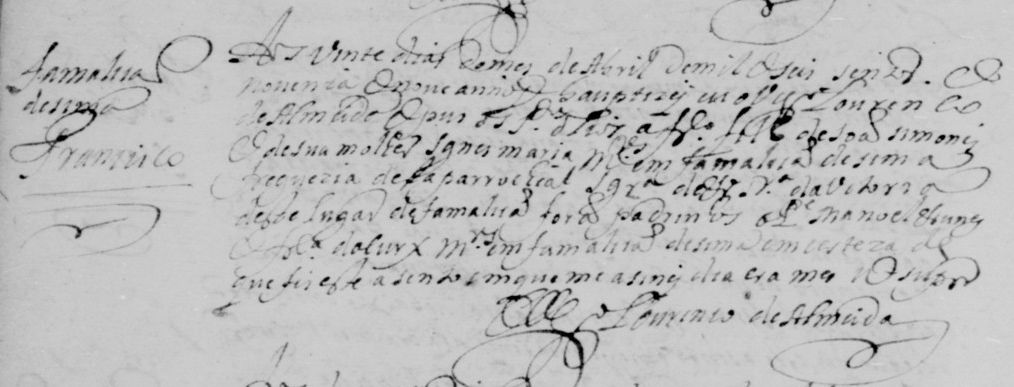 famalicaõ
desima
Francisco
Aos vinte dias do mes de Abril de mil & seis sentos. &
noventa & nove annos bauptizei eu o Vig.ro Louren ço
de Almeida & pus os s.tos olios a fr.co f.o de Joaõ simonis
& de sua molher Ignes maria M.res em famalicaõ de sima
freguezia desta parrochial Igr.a de N. Sr.a da Vitoria
deste lugar de famalicaõ foraõ padrinhos o P.e Manoel Nunes
& M.res em famalicaõ de sima em certeza de
que fiz este asento em que me asinei dia era mes ut supra
Lourenço de Almeida